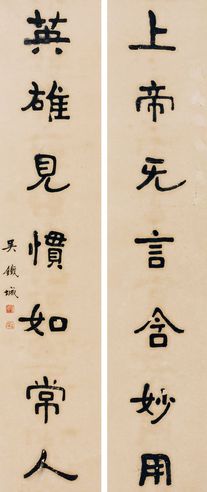 上帝无言含妙用
英雄見慣如常人
吳鐵城